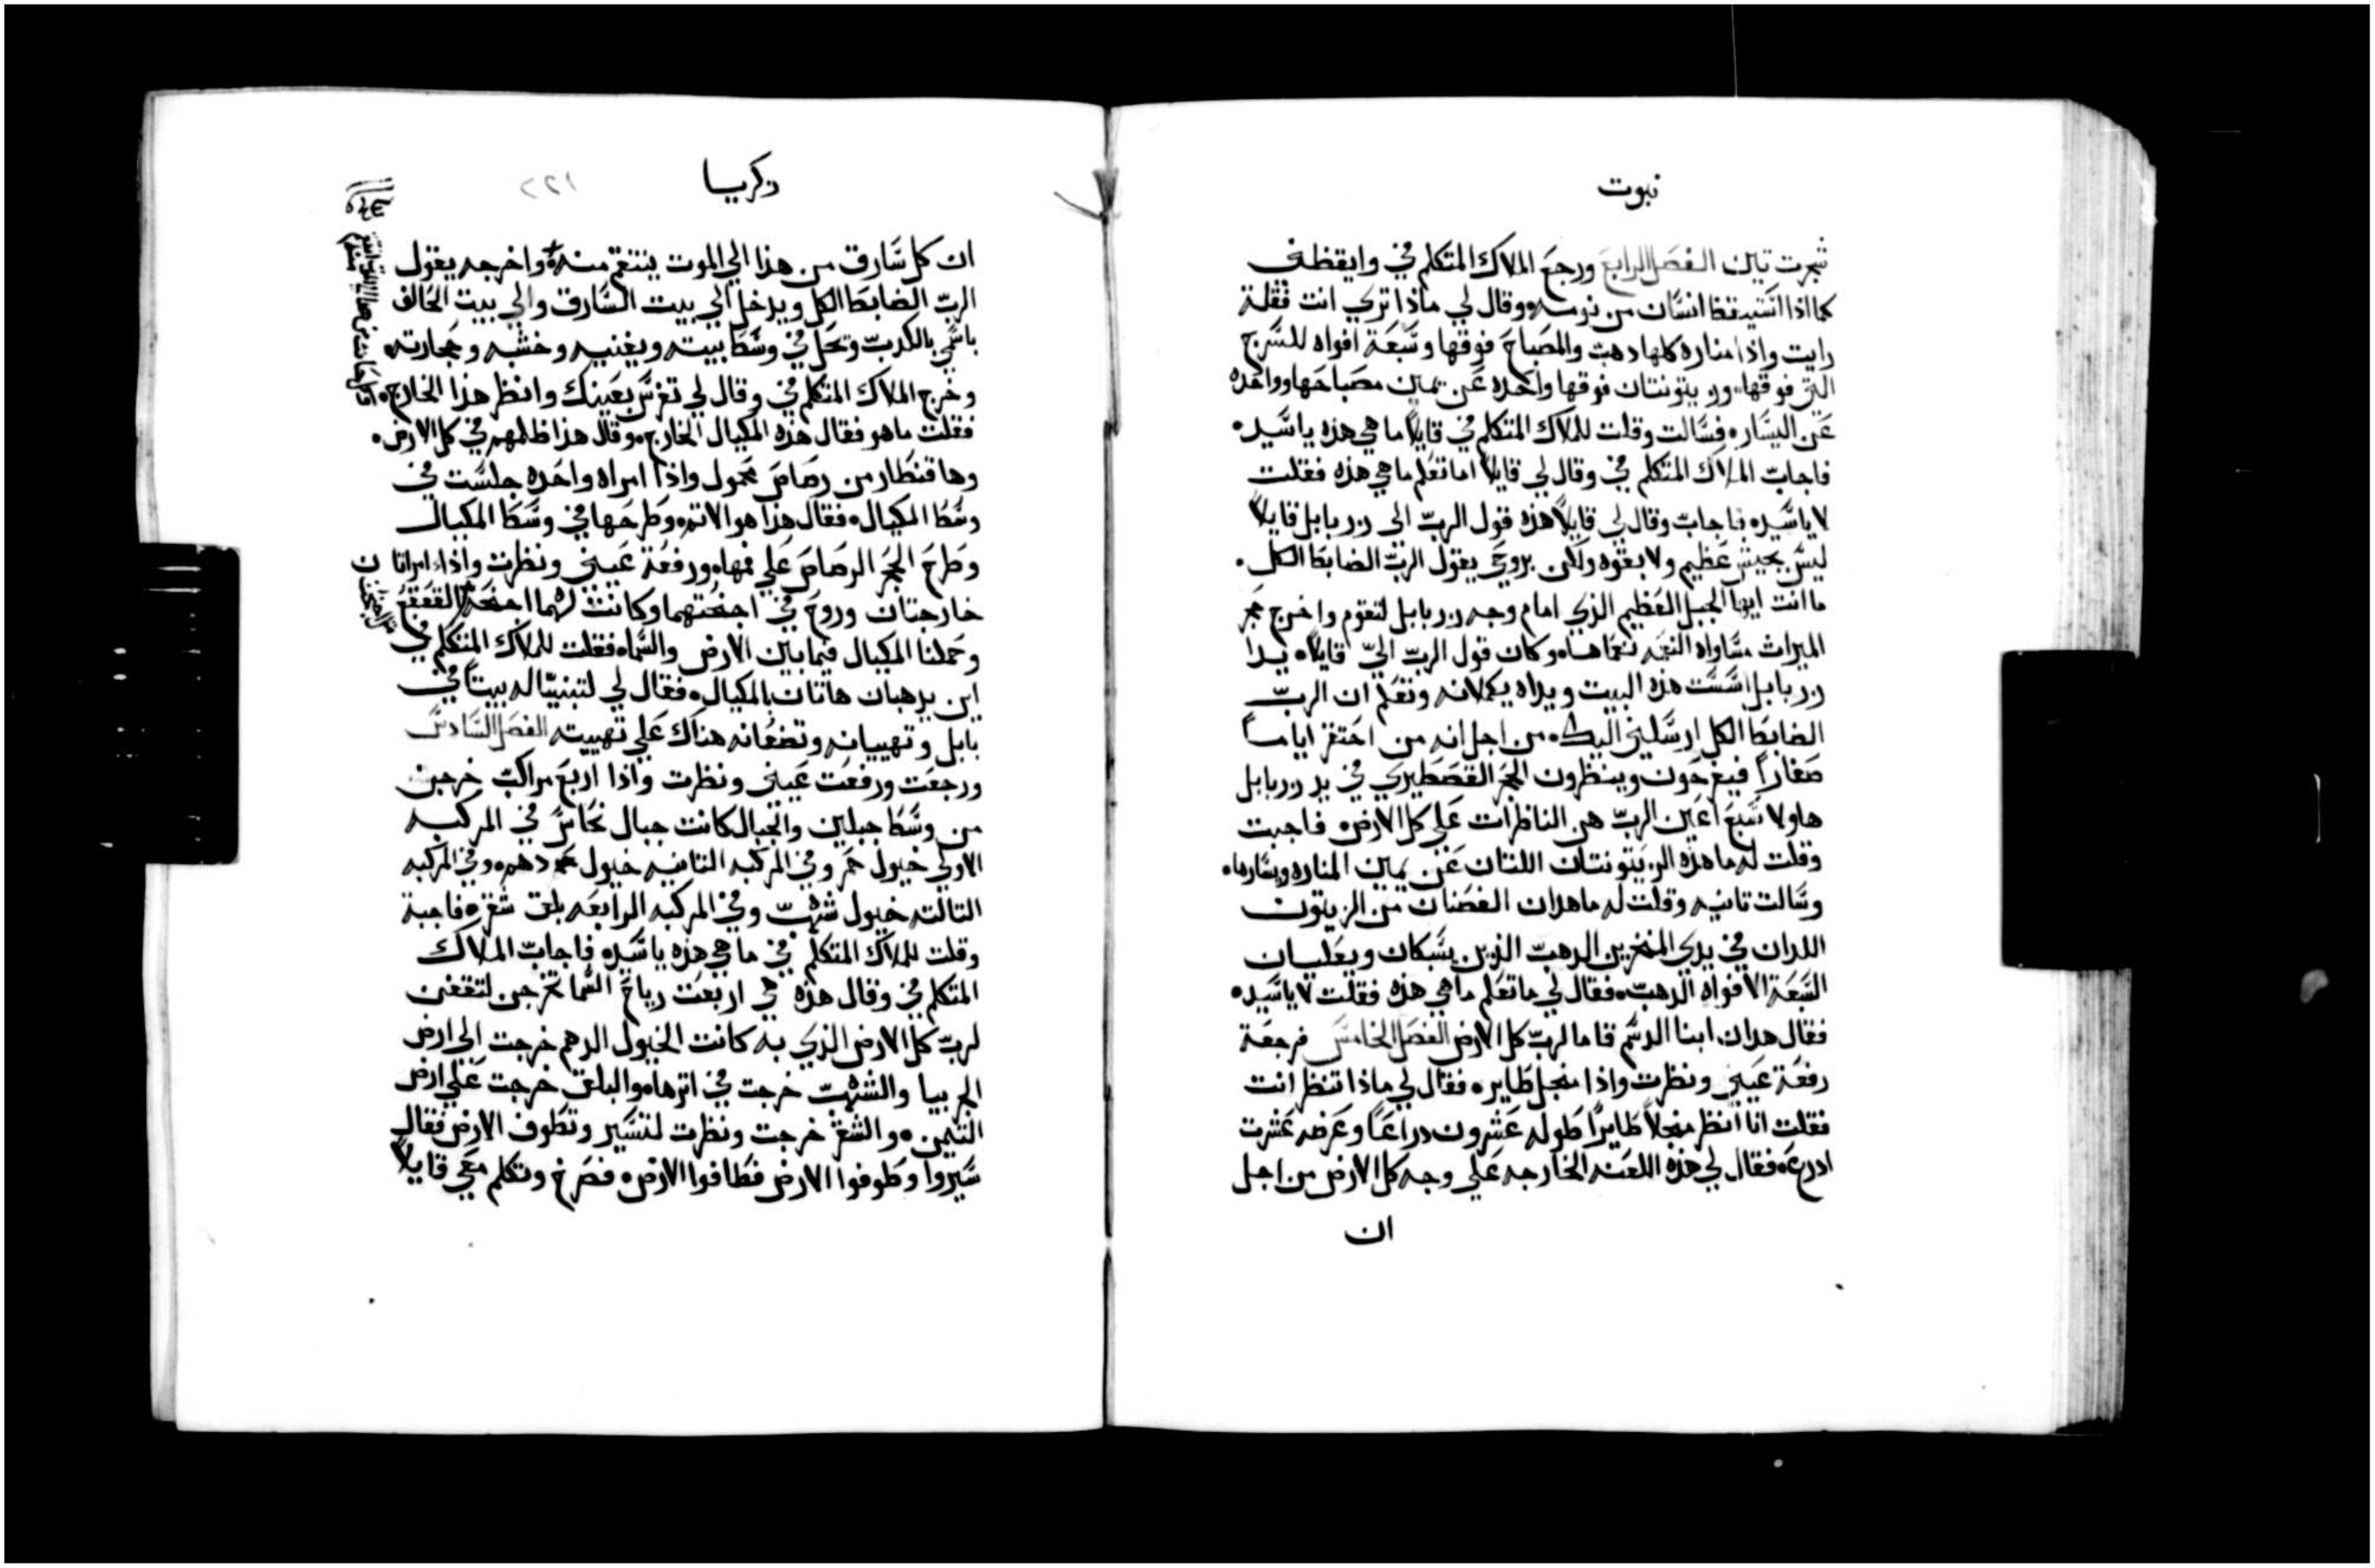 نبوت
شجرت تين الفصل الرابع ورجع الملاك المتكلم في وايقظني
كما اذا استيقظ انسان من نومه وقال لي ماذا تري انت فقلة
رايت واذا مناره كلها دهب والمصباح فوقها وسبعة افواه للسرج
التي فوقها وزيتونتان فوقها واحده عن يمين مصباحها وواحده
عن اليسار فسالت وقلت للملاك المتكلم في قايلاً ما هي هذه ياسيد
فاجاب الملاك المتكلم في وقال لي قايلاً اما تعلم ما هي هذه فقلت
لا ياسيد فاجاب وقال لي قايلاً هذه قول الرب الى زربابل قايلاً
ليس بجيش عظيم ولا بقوه ولكن بروحي يقول الرب الضابط الكل
ما انت ايها الجبل العظيم الذي امام وجه زربابل لتقوم واخرج حجر
الميراث مساواه النعمه نعماها وكان قول الرب الي قايلاً يدا
زربابل اسست هذه البيت ويداه يكملانه وتعلم ان الرب
الضابط الكل ارسلني اليك من اجل انه من احتقر اياماً
صغاراً فيفرحون وينظرون الحجر القصطيري في يد زربابل
هاولا سبع اعين الرب هن الناظرات على كل الارض فاجبت
وقلت له ما هذه الزيتونتان اللتان عن يمين المناره ويسارها
وسالت تانيه وقلت له ما هدان الغصنان من الزيتون
اللدان في يدي المنخرين الدهب الذين يسبكان ويعليان
السبعة الافواه الدهب فقال لي ما تعلم ما هي هذه فقلت لا ياسيد
فقال هدان ابنا الدسم قاما لرب كل الارض الفصل الخامس فرجعة
رفعة عيني ونظرت واذا منجل طاير فقال لي ماذا تنظر انت
فقلت انا انظر منجلاً طايراً طوله عشرون دراعاً وعرضه عشرت
ادرع فقال لي هذه اللعنه الخارجه علي وجه كل الارض من اجل
ان
زكريا
٢٢١
ان كل سارق من هذا الي الموت ينتقم منه واخرجه يقول
الرب الضابط الكل ويدخل الي بيت السارق والي بيت الحالف
باسمي بالكدب وتحل في وسط بيته ويفنيه وخشبه وحجارته
وخرج الملاك المتكلم في وقال لي تفرس بعينك وانظر هذا الخارج
فقلت ما هو فقال هذه المكيال الخارج وقال هذا ظلمهم في كل الارض
وها قنطار من رصاص محمول واذا امراه واحده جلست في
وسط المكيال فقال هذا هو الاتم وطرحها في وسط المكيال
وطرح الحجر الرصاص علي فمها ورفعة عيني ونظرت واذا امراتان
خارجتان وروح في اجنحتهما وكانت لهما اجنحة القعقع
وحملنا المكيال فيما بين الارض والسما فقلت للملاك المتكلم في
اين يدهبان هاتان بالمكيال فقال لي لتبنيا له بيتاً في
بابل وتهييانه وتضعانه هناك علي تهييته الفصل السادس
ورجعت ورفعت عيني ونظرت واذا اربع مراكب خرجن
من وسط جبلين والجبال كانت جبال نحاس في المركبه
الاولي خيول حمر وفي المركبه التانيه خيول دهم وفي المركبه
التالته خيول شهب وفي المركبه الرابعه بلق شقر فاجبة
وقلت للملاك المتكلم في ما هي هذه ياسيد فاجاب الملاك
المتكلم في وقال هذه هي اربعت رياح السما تخرجن لتقفن
لرب كل الارض الذي به كانت الخيول الدهم خرجت الي ارض
الجربيا والشهب خرجت في اترها والبلق خرجت علي ارض
التيمن والشقر خرجت ونظرت لتسير وتطوف الارض فقال
سيروا وطوفوا الارض فطافوا الارض فصرخ وتكلم معي قايلاً